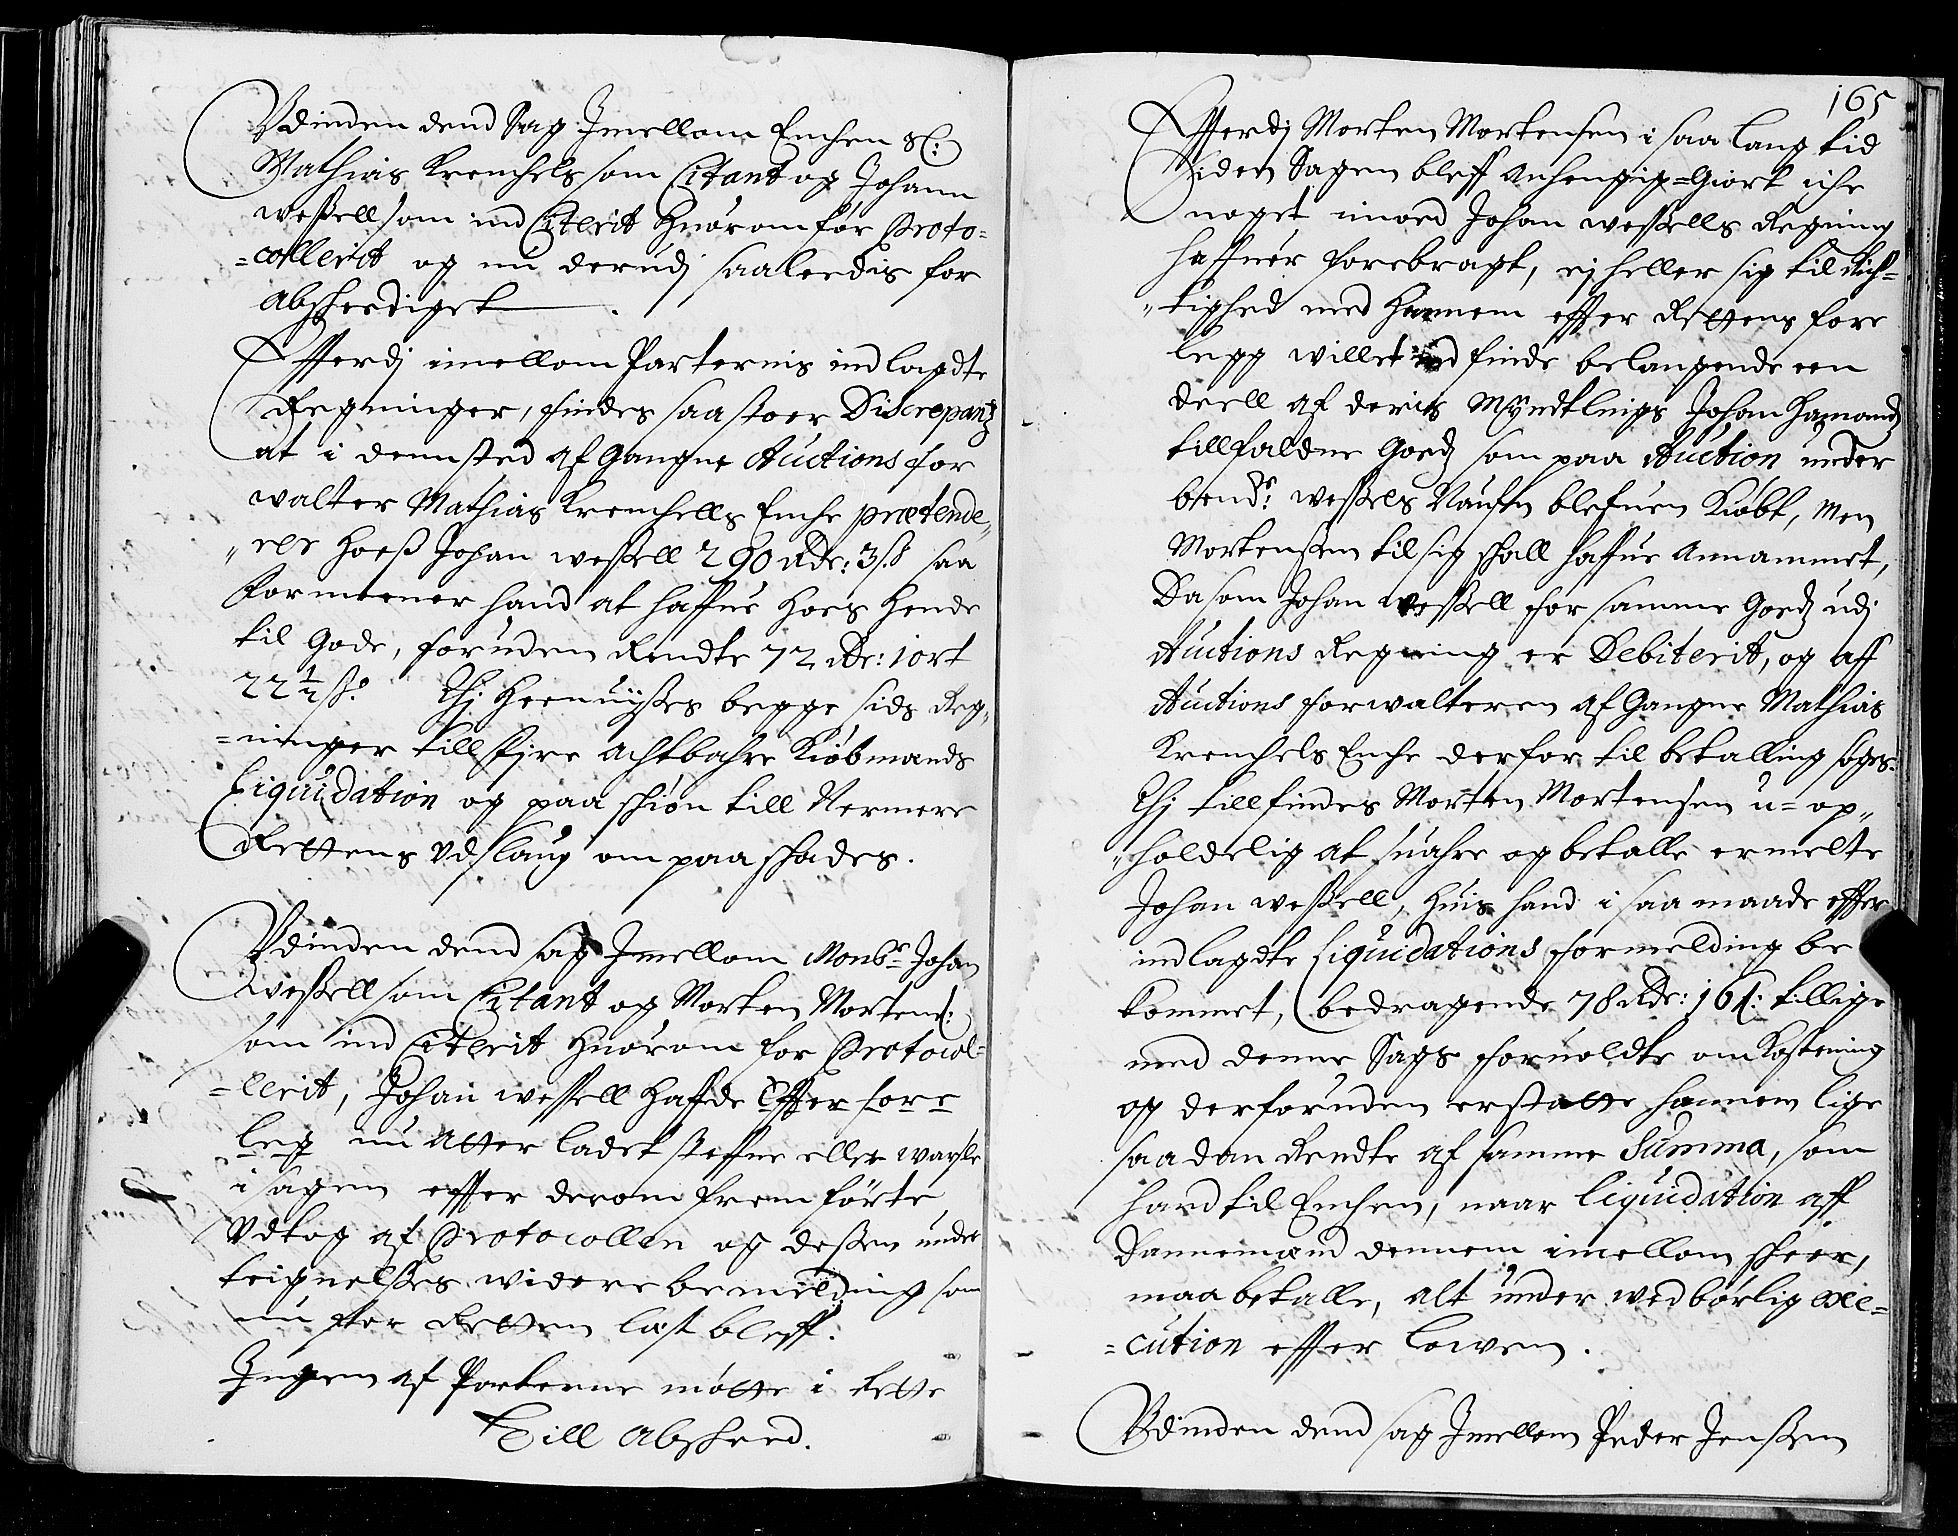 Udinden dend Sag Imellom Enchen Sl:
Mathias Krenchels som Citant og Johann
wessell som ind Citerit huorom før Proto=
=collerit og nu derudj saaleedis for
Abscheediget
Efferdj imellom Parternis indlagdte
Regninger, findes saa stoer Discrepantz
at i dennsted afgangne Auctions for
walter Mathias Krenchells Enche prætende„
„rer hoeß Johan wessell 290 Rdr: 3 ß saa
formeener hand at haffue hoes hende
til gode, foruden Rendte 72 Rdr: 1 ort
22½ ß. Thj heenuißes begge sids Reg„
=ninger till fire achtbahre Kiøbmands
Liquidation og paa schiøn till Nermere
Rettens Udslaug om paaschades.
Udinden dend sag Imellom Monsr Johan
wessell som Citant og Morten Mortens:
som ind Citerit huorom for Protocol=
=lerit, Johan wessell hafde Effter fore
leg nu atter ladet steffne eller warsle
i sagen effter derom frem førte
Udtog af Protocollen og dessen under
teignelsses widere bemelding som
nu for Retten læst bleff.
Ingen af Parterne møtte i Rette
Till Abscheed.
165
Efferdj Morten Mortensen i saa lang tid
siden Sagen bleff Anhengig=Giort iche
noget imoed Johan wessells Regning
haffuer forebragt, ej heller sig til Rich=
„tighed med hannem effter Rettens fore
legg willet ind finde belangende een
deell af deris Myndtlings Johan Hamands
tillfaldne Goedz som paa Auction under
bendr: wessels Naufn blefuen Kiøbt, Men
Mortenssen til sig schall haffue Annammet,
Da som Johan wessell for samme Goedz udj
Auctions Regning er Debiterit, og aff
Auctions forwalteren afgangne Mathias
Krenchels Enche derfor til betalling søges.
Thj tillfindes Morten Mortensen u=op„
„holdelig at suahre og betalle ermelte
Johan wessell, huis hand i saa maade effter
indlagdte Liquidations formelding be
kommet, bedragende 78 Rdr: 16 ß: tillige
med denne Sags foruoldte omkostening
og derforuden erstatte hannem lige
saadan Rendte af samme Summa, som
hand til Enchen, naar liquidation aff
Dannemænd dennem imellom scheer,
maa betalle, alt under wedbørlig exe=
=cution effter lowen.
Udinden dend sag Imellom Peder Jenssen